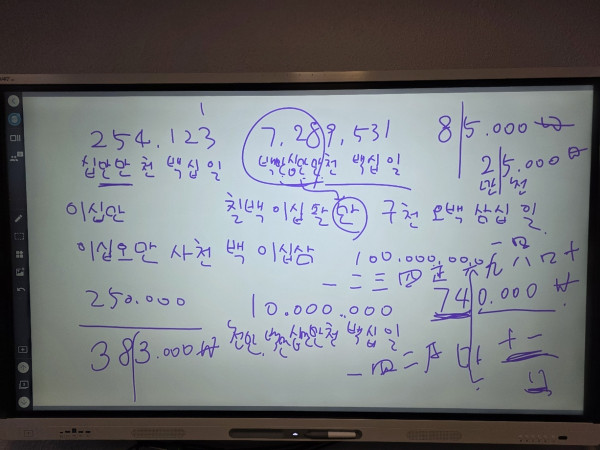 1
254.123
십만 만 천 백 십 일
이십만
이십오만 사천 백 이십삼
250.000
383.000₩
7,289,531
백만 십만 만 천 백 십 일
칠백 이십 팔 만 구천 오백 삼십 일
10.000.000
천만 백만 십만 만 천 백 십 일
85.000 ₩
25.000 ₩
만 천
100.000.00
一 二 三 四 五 六 九 八 十
740.000 ₩
一 四 二
十 一